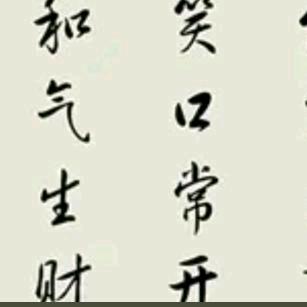 笑口常开
和气生财